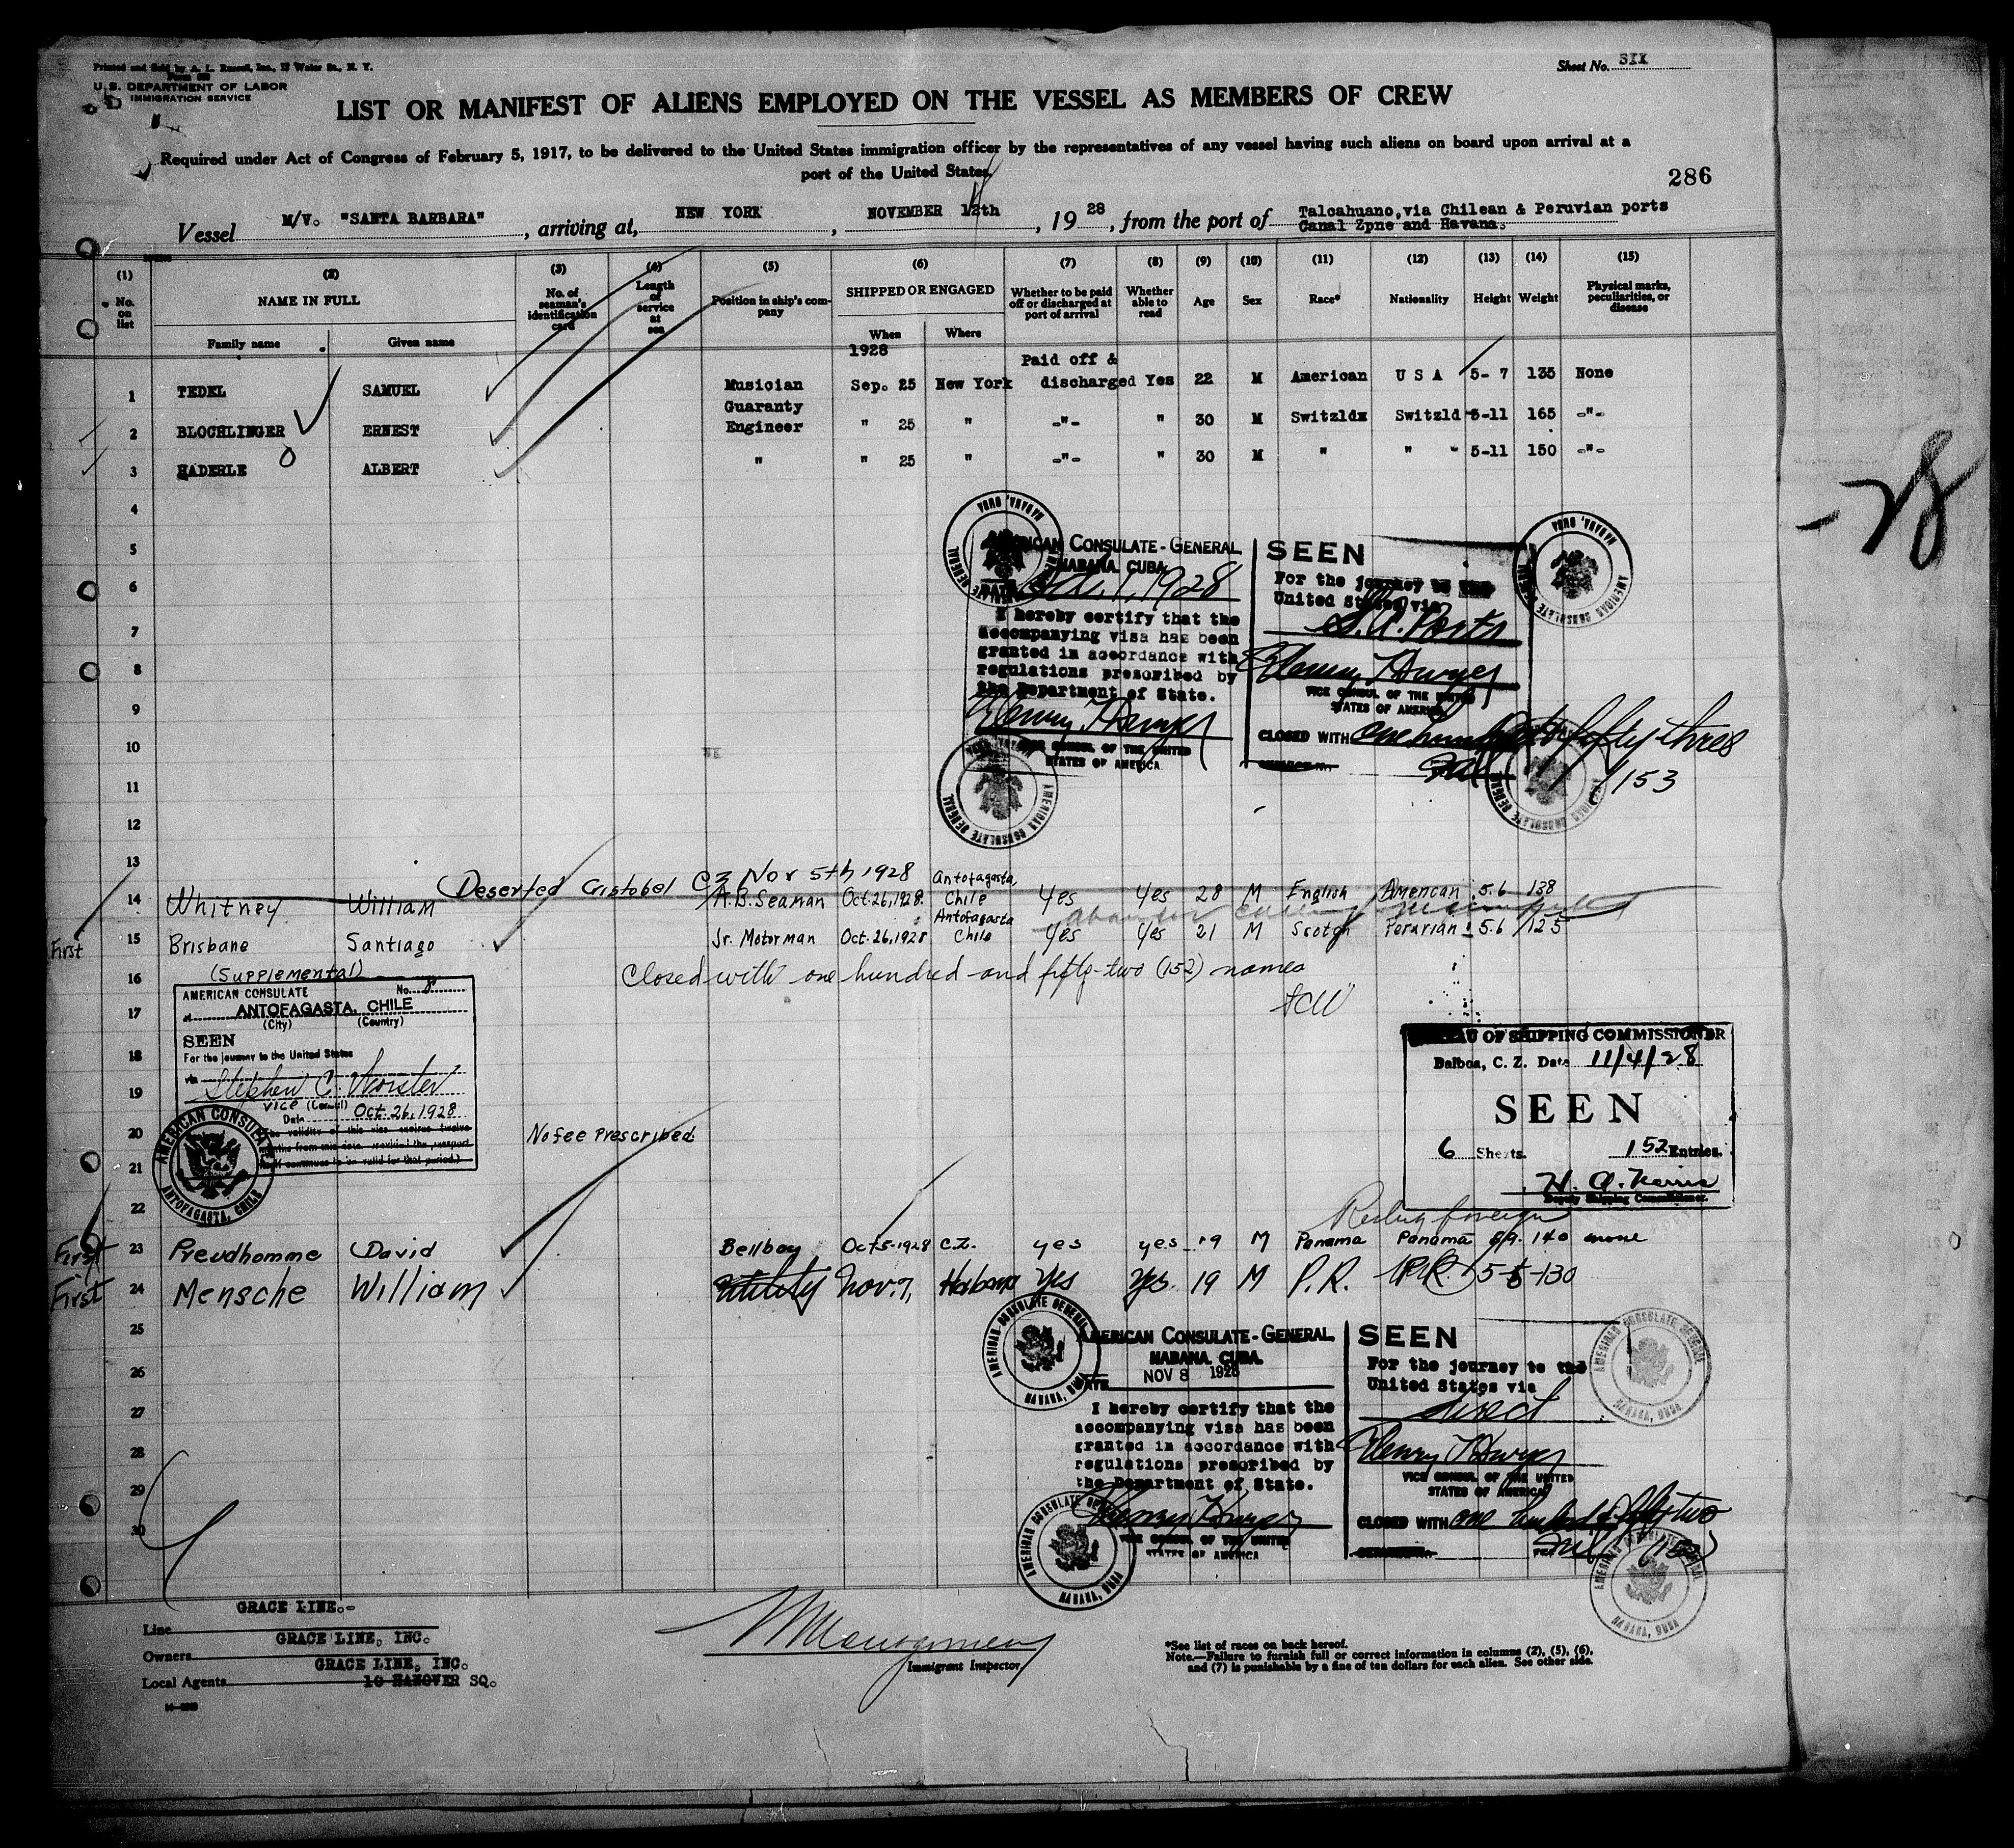 Printed and Sold by A. L. Russell, Inc., 17 Water St., N. Y.
U. S. DEPARTMENT OF LABOR
IMMIGRATION SERVICE
Sheet No. SIX
LIST OR MANIFEST OF ALIENS EMPLOYED ON THE VESSEL AS MEMBERS OF CREW
Required under Act of Congress of February 5, 1917, to be delivered to the United States immigration officer by the representatives of any vessel having such aliens on board upon arrival at a
port of the United States.
286
Vessel M/V. "SANTA BARBARA", arriving at, NEW YORK, NOVEMBER 12th, 1928, from the port of Talcahuano, via Chilean & Peruvian ports
Canal Zpne and Havana.
(1) (2) (3) (4) (5) (6) (7) (8) (9) (10) (11) (12) (13) (14) (15)
No. on list NAME IN FULL No. of seaman's identification card Length of service at sea Position in ship's company SHIPPED OR ENGAGED Whether to be paid off or discharged at port of arrival Whether able to read Age Sex Race* Nationality Height Weight Physical marks, peculiarities, or disease
Family name Given name When Where
1928 Paid off &
1 TEDEL SAMUEL Musician Sep. 25 New York discharged Yes 22 M American U S A 5- 7 135 None
Guaranty
2 BLOCHLINGER ERNEST Engineer " 25 " -"- " 30 M Switzld Switzld 5-11 165 -"-
3 HADERLE ALBERT " " 25 " -"- " 30 M " " 5-11 150 -"-
4
5
6
7
8
9
10
11
12
13
AMERICAN CONSULATE-GENERAL
HABANA, CUBA
1928
I hereby certify that the
accompanying visa has been
granted in accordance with
regulations prescribed by
the Department of State.
VICE CONSUL OF THE UNITED
STATES OF AMERICA
SEEN
For the journey to the
United States via
S.A. Ports
VICE CONSUL OF THE UNITED
STATES OF AMERICA
CLOSED WITH one hundred & fifty three
153
AMERICAN CONSULATE GENERAL HABANA, CUBA
-28
Deserted Cristobel C Z Nov 5th 1928 Antofagasta,
14 Whitney William A.B. Seaman Oct. 26, 1928 Chile Yes Yes 28 M English American 5.6 138
Antofagasta
First 15 Brisbane Santiago Jr. Motorman Oct. 26, 1928 Chile Yes Yes 21 M Scotch Peruvian 5.6 125
16 (Supplemental) Closed with one hundred and fifty-two (152) names
17
18
19
20
21
22
AMERICAN CONSULATE No. 8
at ANTOFAGASTA, CHILE
(City) (Country)
SEEN
For the journey to the United States
via
Stephen C. Worster
Vice (Consul)
Date Oct. 26, 1928
AMERICAN CONSULATE ANTOFAGASTA, CHILE
No fee Prescribed
BUREAU OF SHIPPING COMMISSIONER
Balboa, C. Z. Date 11/4/28
SEEN
6 Sheets. 152 Entries.
Deputy Shipping Commissioner.
First 23 Preudhomme David Bellboy Oct 5-1928 C.Z. yes yes 19 M Panama Panama 5/9. 140 none
First 24 Mensche William Utility Nov. 7, Habana Yes Yes. 19 M P.R. P.R. 5-5-130
25
26
27
28
29
30
AMERICAN CONSULATE-GENERAL
HABANA, CUBA.
DATE NOV 8 1928
I hereby certify that the
accompanying visa has been
granted in accordance with
regulations prescribed by
the Department of State.
VICE CONSUL OF THE UNITED
STATES OF AMERICA
SEEN
For the journey to the
United States via
direct
VICE CONSUL OF THE UNITED
STATES OF AMERICA
CLOSED WITH one hundred & fifty two
(152)
AMERICAN CONSULATE GENERAL HABANA, CUBA
GRACE LINE.-
Line
GRACE LINE, INC.
Owners
GRACE LINE, INC.
Local Agents 10 HANOVER SQ.
Immigrant Inspector
*See list of races on back hereof.
Note.—Failure to furnish full or correct information in columns (2), (5), (6),
and (7) is punishable by a fine of ten dollars for each alien. See other side.